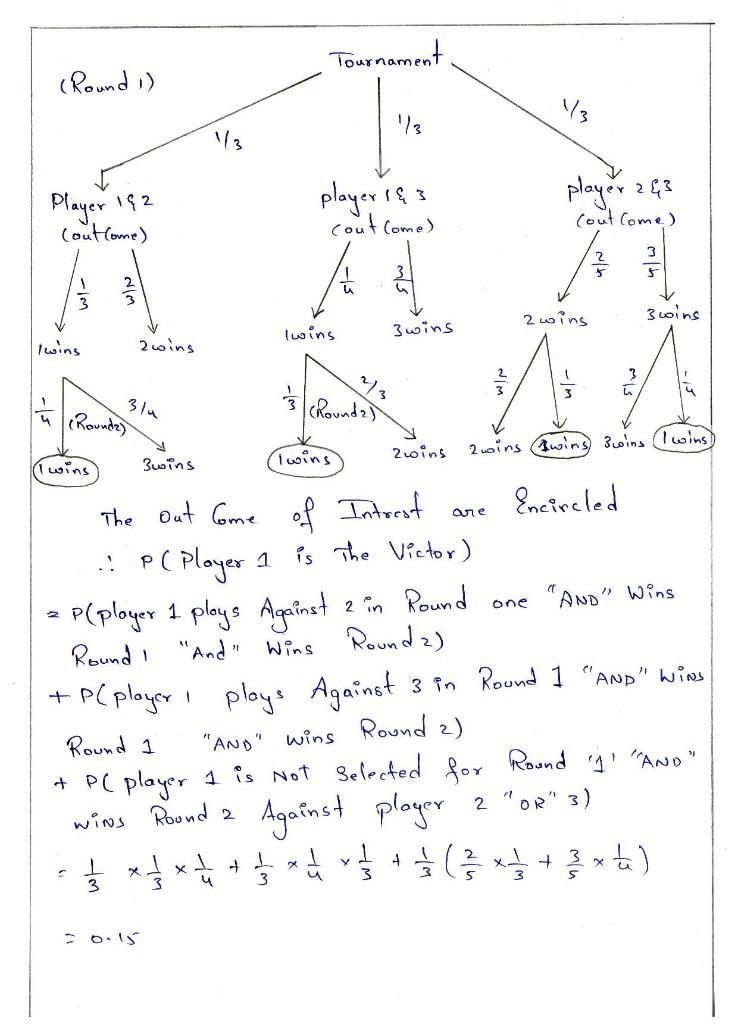 Tournament
(Round 1)
1/3
1/3
1/3
Player 1 & 2
player 1 & 3
player 2 & 3
(outCome)
(outCome)
(outCome)
1/3
2/3
1/4
3/4
2/5
3/5
1wins
2wins
1wins
3wins
2wins
3wins
1/4
(Round2)
3/4
1/3
(Round2)
2/3
2/3
1/3
3/4
1/4
1wins
3wins
1wins
2wins
2wins
1wins
3wins
1wins
The Out Come of Intrest are Encircled
∴ P( Player 1 is The Victor)
= P(player 1 plays Against 2 in Round one "AND" Wins
Round 1 "And" Wins Round 2)
+ P( player 1 plays Against 3 in Round 1 "AND" Wins
Round 1 "AND" wins Round 2)
+ P( player 1 is Not Selected for Round '1' "AND"
wins Round 2 Against player 2 "OR" 3)
= 1/3 × 1/3 × 1/4 + 1/3 × 1/4 × 1/3 + 1/3 ( 2/5 × 1/3 + 3/5 × 1/4 )
= 0.15